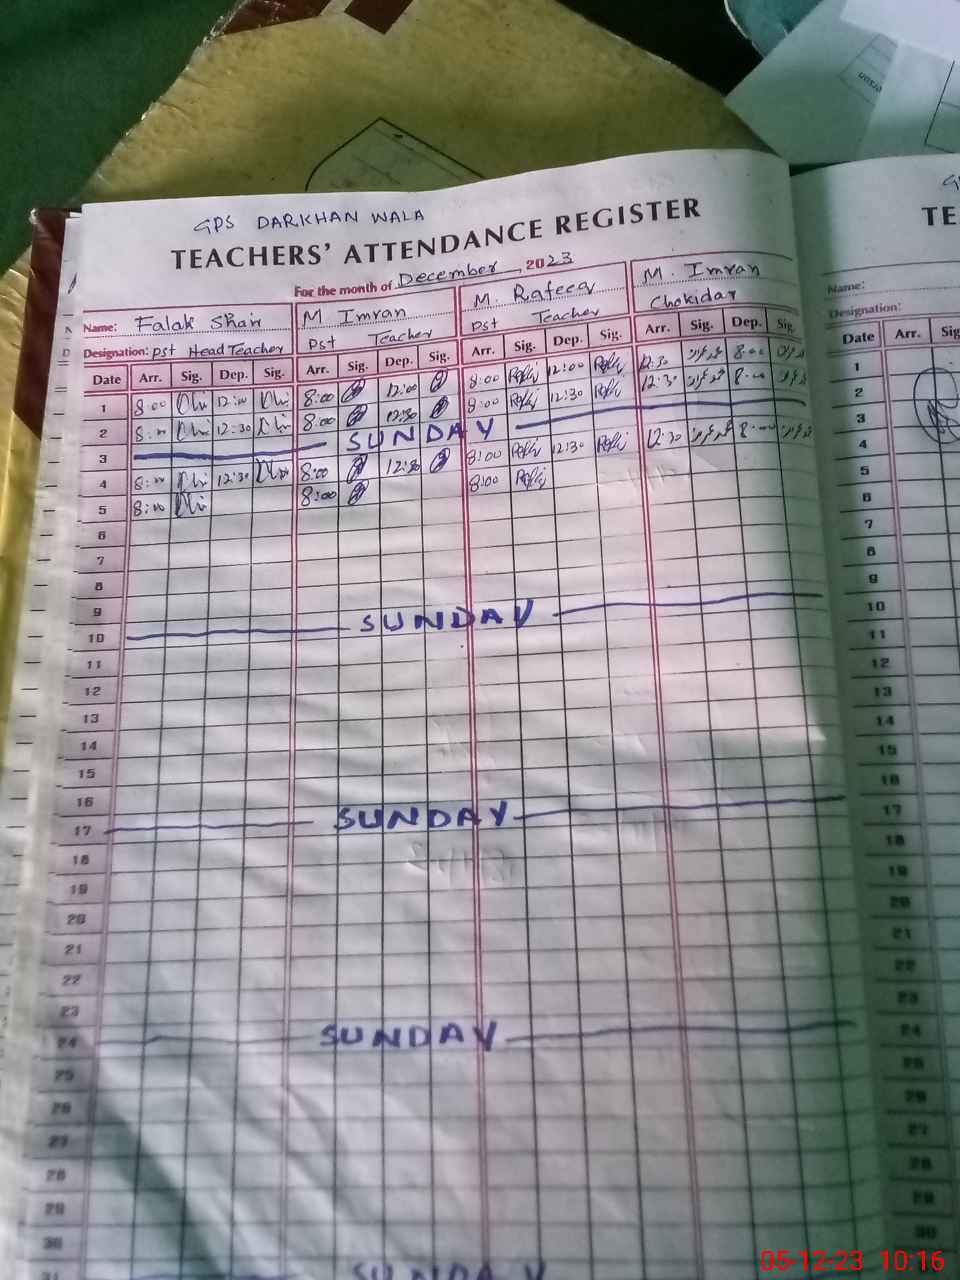 GPS DARKHAN WALA
TEACHERS' ATTENDANCE REGISTER
For the month of December, 2023
Name: Falak Shair M Imran M. Rafeeq M. Imran
Designation: Pst Head Teacher Pst Teacher Pst Teacher Chokidar
Date Arr. Sig. Dep. Sig. Arr. Sig. Dep. Sig. Arr. Sig. Dep. Sig. Arr. Sig. Dep. Sig.
1 8:00 12:00 8:00 12:00 8:00 12:00 12:30 8:00
2 8:00 12:30 8:00 12:30 8:00 12:30 12:30 8:00
3 SUNDAY
4 8:00 12:30 8:00 12:30 8:00 12:30 12:30 8:00
5 8:00 8:00 8:00
6
7
8
9
10 SUNDAY
11
12
13
14
15
16
17 SUNDAY
18
19
20
21
22
23
24 SUNDAY
25
26
27
28
29
30
31 SUNDAY
TE
Name:
Designation:
Date Arr. Sig
1
2
3
4
5
6
7
8
9
10
11
12
13
14
15
16
17
18
19
20
21
22
23
24
25
26
27
28
29
30
05-12-23 10:16